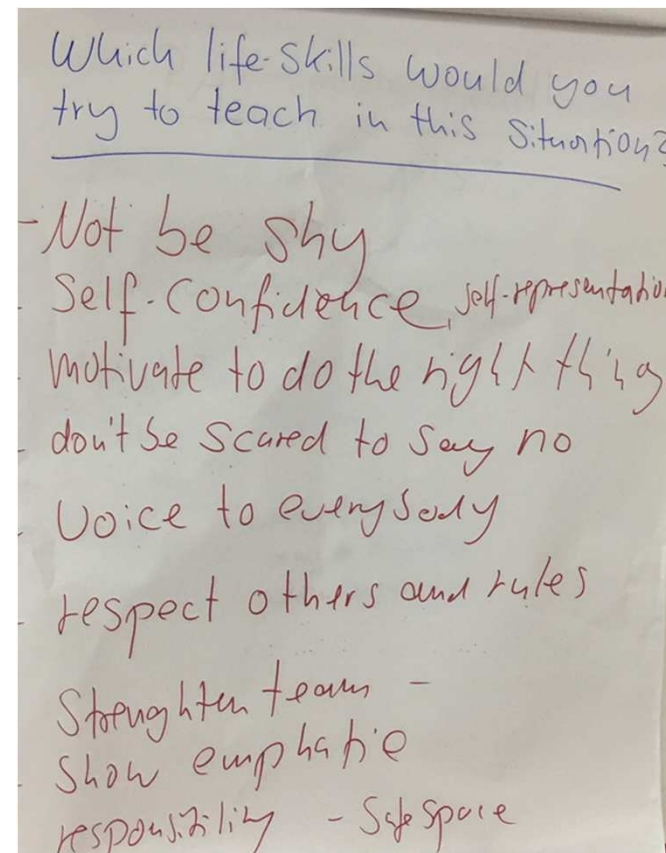 Which life-skills would you
try to teach in this situation?
- Not be shy
- Self-confidence, self-representation
- motivate to do the right thing
- don't be scared to say no
- Voice to everybody
- respect others and rules
Strenghten team -
- Show emphatie
responsibility - Safe space